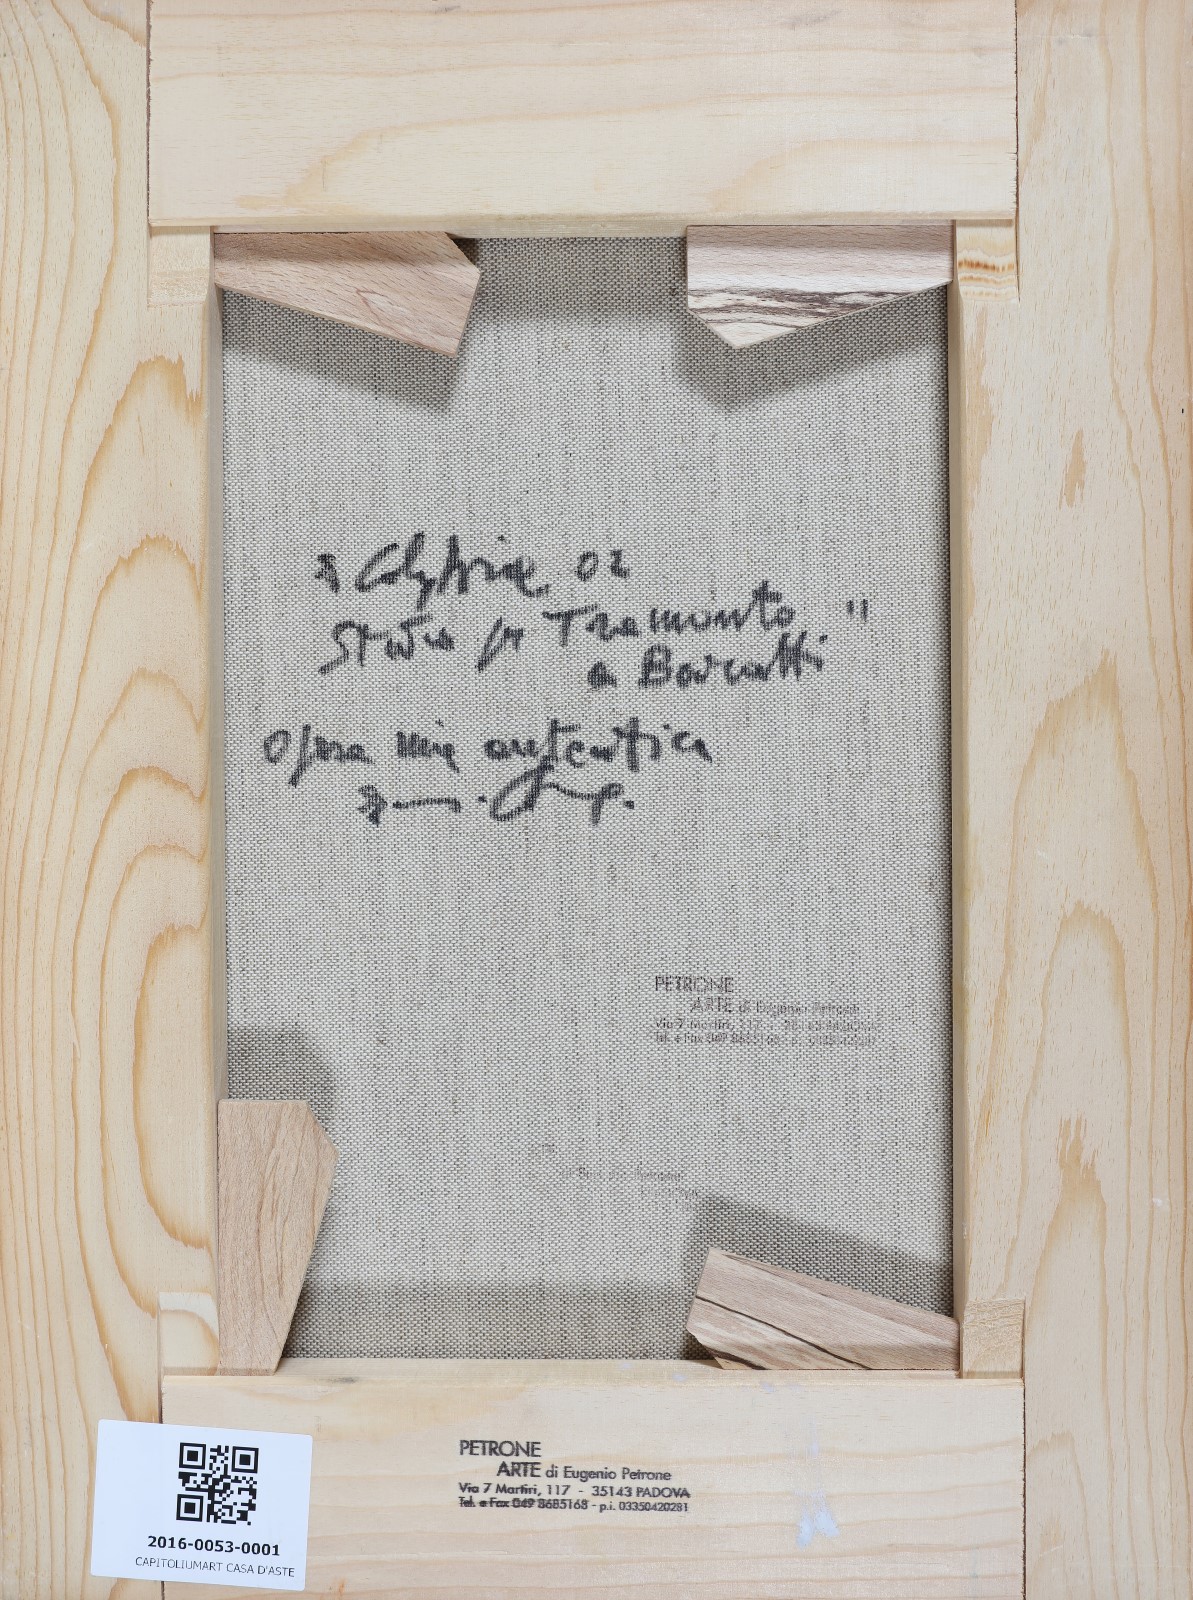 02
Studio per Tramonto "
a
Opera mia autentica
PETRONE
ARTE di Eugenio Petrone
Via 7 Martiri, 117 - 35143 PADOVA
Tel. e Fax 049 8685168
PETRONE
ARTE di Eugenio Petrone
Via 7 Martiri, 117 - 35143 PADOVA
Tel. e Fax 049 8685168 - p.i. 03350420281
2016-0053-0001
CAPITOLIUMART CASA D'ASTE